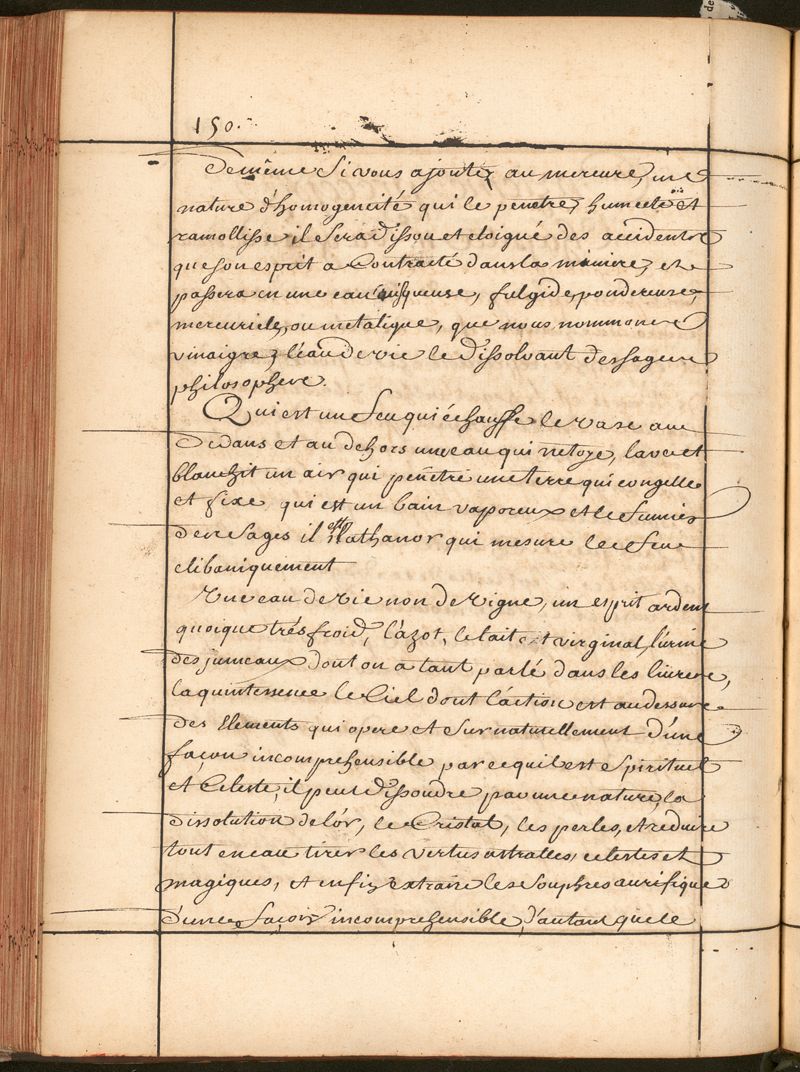 150.
De même Si vous ajoutez au mercure, une
nature d'homogeneité qui le penetre, humecte et
ramollisse il Sera dissou et eloigné des accidents
que son esprit a Contracté dans la miniere, et
passera en une eau visqueuse, fulgide, pondereuse,
mercuriele, ou metalique, que nous nommons
vinaigre, l'eau de vie le dissolvant des sages
philosophes.
Qui est un feu qui échauffe le vase au
dedans et au dehors une eau qui netoye, lave et
blanchit un air qui penétre une terre qui congelle
et fixe, qui est un bain vaporeux et le fumier
des Sages il est l'athanor qui mesure le feu
clibaniquement
Une eau de vie non de vigne, un esprit ardent
quoique trés froid, l'azot, le lait virginal, l'urine
des jumeaux dont on a tant parlé dans les livres,
la quintessence le Ciel dont l'action est au dessus
des Elements qui opere et Sur naturellement d'une
façon incomprehensible par ce quil est Spirituel
et Celeste, il peut dissoudre par une nature, la
dissolution de l'or, le Cristal, les perles, et reduire
tout en eau tirer les vertus astralles, celestes et
magiques, et enfin extraire les Souphres aurifique
d'une façon incomprehensible, d'autant que le